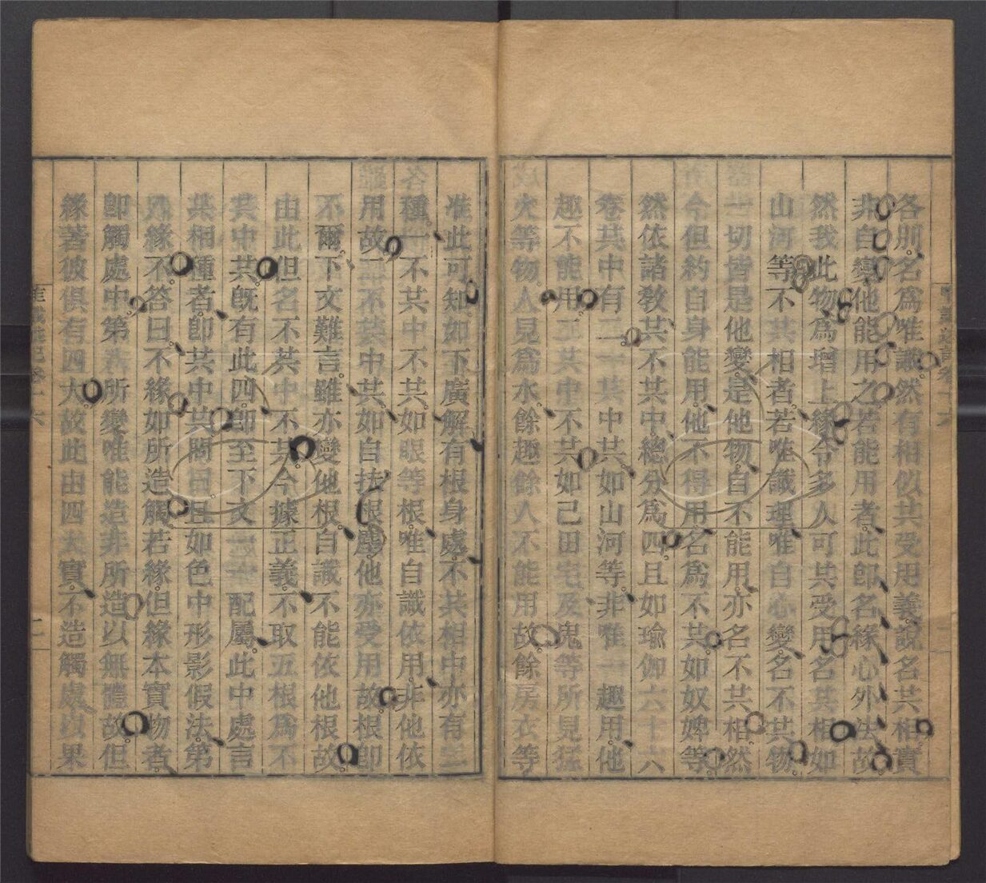 各別名爲唯識然有相似共受用義說名共相實
非自變他能用之若能用者此卽名緣心外法故
然我此物爲增上緣令多人可共受用名共相如
山河等不共相者若唯識理唯自心變名不共物
一切皆是他變是他物自不能用亦名不共相然
今但約自身能用他不得用名爲不共如奴婢等
然依諸教共不共中總分爲四且如瑜伽六十六
卷共中有二一共中共如山河等非唯一趣用他
趣不能用二共中不共如己田宅及鬼等所見猛
火等物人見爲水餘趣餘人不能用故餘房衣等
准此可知如下廣解有根身處不共相中亦有二
種一不共中不共如眼等根唯自識依用非他依
用故二不共中共如自扶根塵他亦受用故根卽
不爾下文難言雖亦變他根自識不能依他根故
由此但名不共中不共今據正義不取五根爲不
共中共旣有此四卽至下文配屬此中處言
共相種者卽共中共問曰且如色中形影假法第
八緣不答曰不緣如所造觸若緣但緣本實物者
卽觸處中第八所變唯能造非所造以無體故但
緣著彼俱有四大故此由四大實不造觸處故果